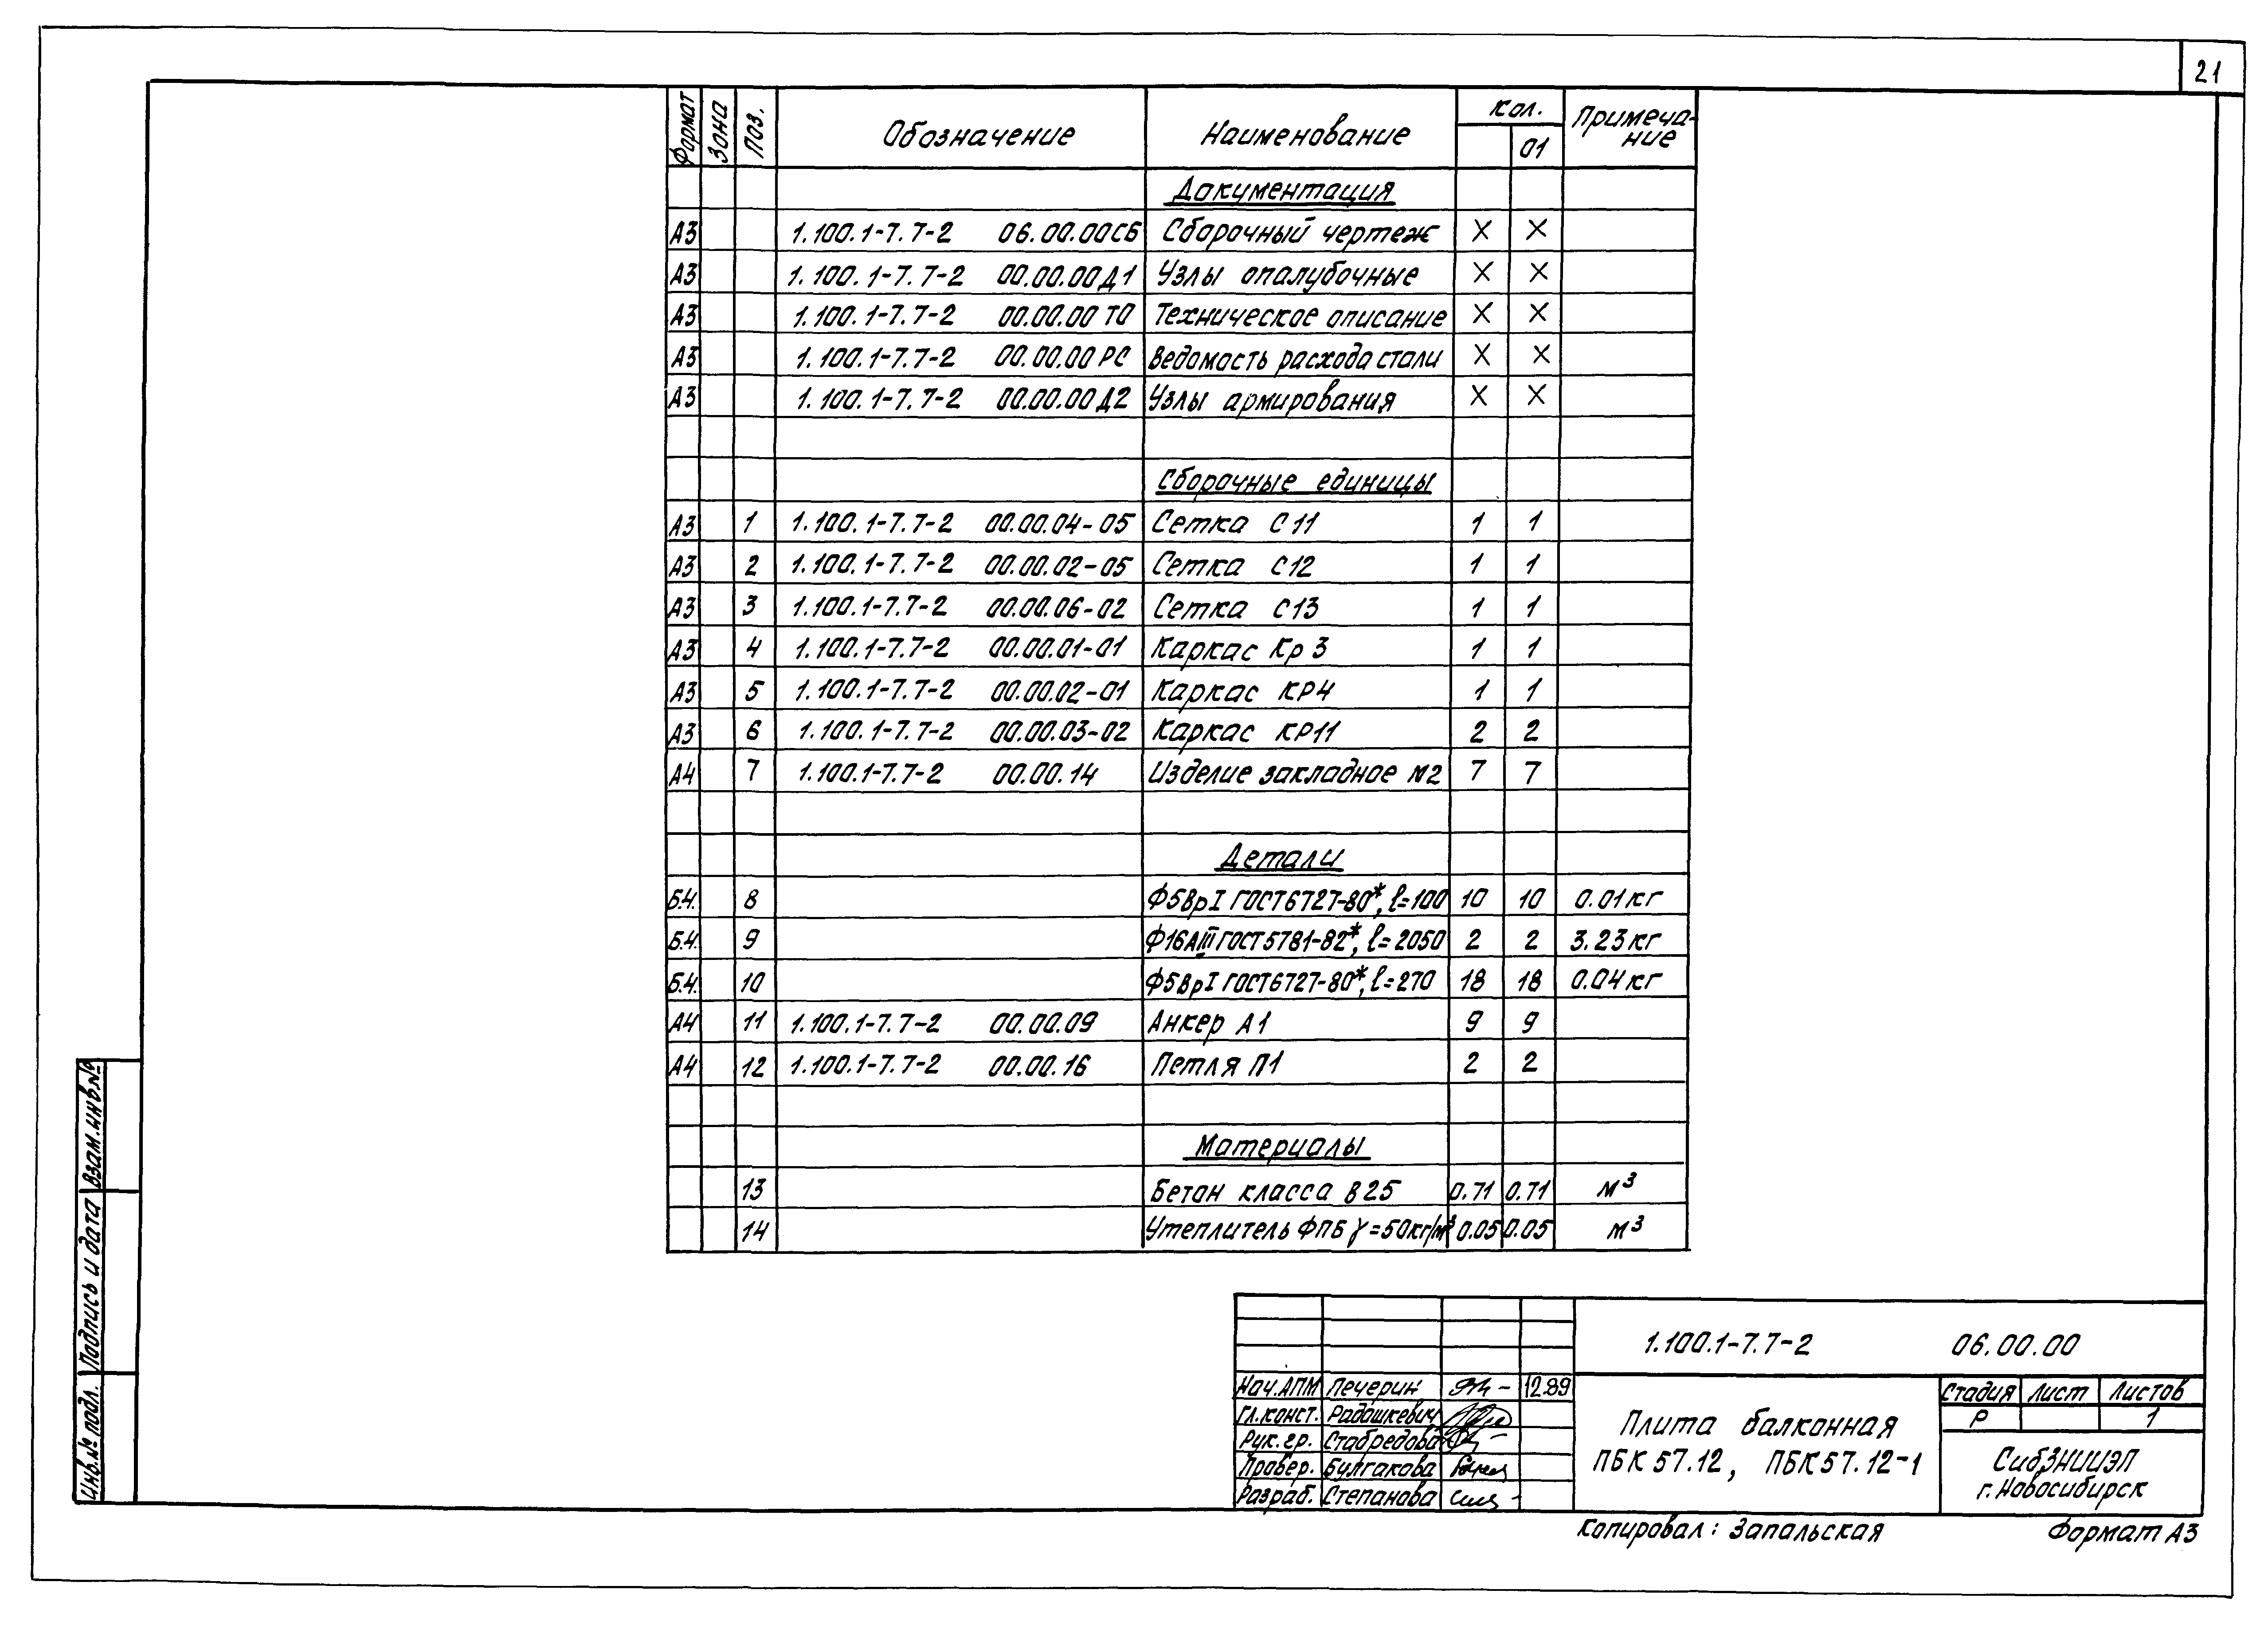 21
Формат Зона Поз. Обозначение Наименование Кол. Примеча-
01 ние
Документация
А3 1.100.1-7.7-2 06.00.00СБ Сборочный чертеж X X
А3 1.100.1-7.7-2 00.00.00Д1 Узлы опалубочные X X
А3 1.100.1-7.7-2 00.00.00 ТО Техническое описание X X
А3 1.100.1-7.7-2 00.00.00 РС Ведомость расхода стали X X
А3 1.100.1-7.7-2 00.00.00 Д2 Узлы армирования X X
Сборочные единицы
А3 1 1.100.1-7.7-2 00.00.04-05 Сетка С11 1 1
А3 2 1.100.1-7.7-2 00.00.02-05 Сетка С12 1 1
А3 3 1.100.1-7.7-2 00.00.06-02 Сетка С13 1 1
А3 4 1.100.1-7.7-2 00.00.01-01 Каркас Кр 3 1 1
А3 5 1.100.1-7.7-2 00.00.02-01 Каркас КР4 1 1
А3 6 1.100.1-7.7-2 00.00.03-02 Каркас КР11 2 2
А4 7 1.100.1-7.7-2 00.00.14 Изделие закладное М2 7 7
Детали
Б.Ч. 8 Ф5ВрI ГОСТ6727-80*, ℓ=100 10 10 0.01кг
Б.Ч. 9 Ф16АIII ГОСТ5781-82*, ℓ=2050 2 2 3.23кг
Б.Ч. 10 Ф5ВрI ГОСТ6727-80*, ℓ=270 18 18 0.04кг
А4 11 1.100.1-7.7-2 00.00.09 Анкер А1 9 9
А4 12 1.100.1-7.7-2 00.00.16 Петля П1 2 2
Материалы
13 Бетон класса В25 0.71 0.71 м³
14 Утеплитель ФПБ γ=50кг/м³ 0.05 0.05 м³
Инв.№ подл. Подпись и дата Взам.инв.№
1.100.1-7.7-2 06.00.00
Нач.АПМ Печерин 12.89
Гл.конст. Радошкевич
Рук.гр. Стабредова
Провер. Булгакова
Разраб. Степанова
Плита балконная
ПБК 57.12, ПБК57.12-1
Стадия Лист Листов
Р 1
СибЗНИИЭП
г.Новосибирск
Копировал: Запальская Формат А3